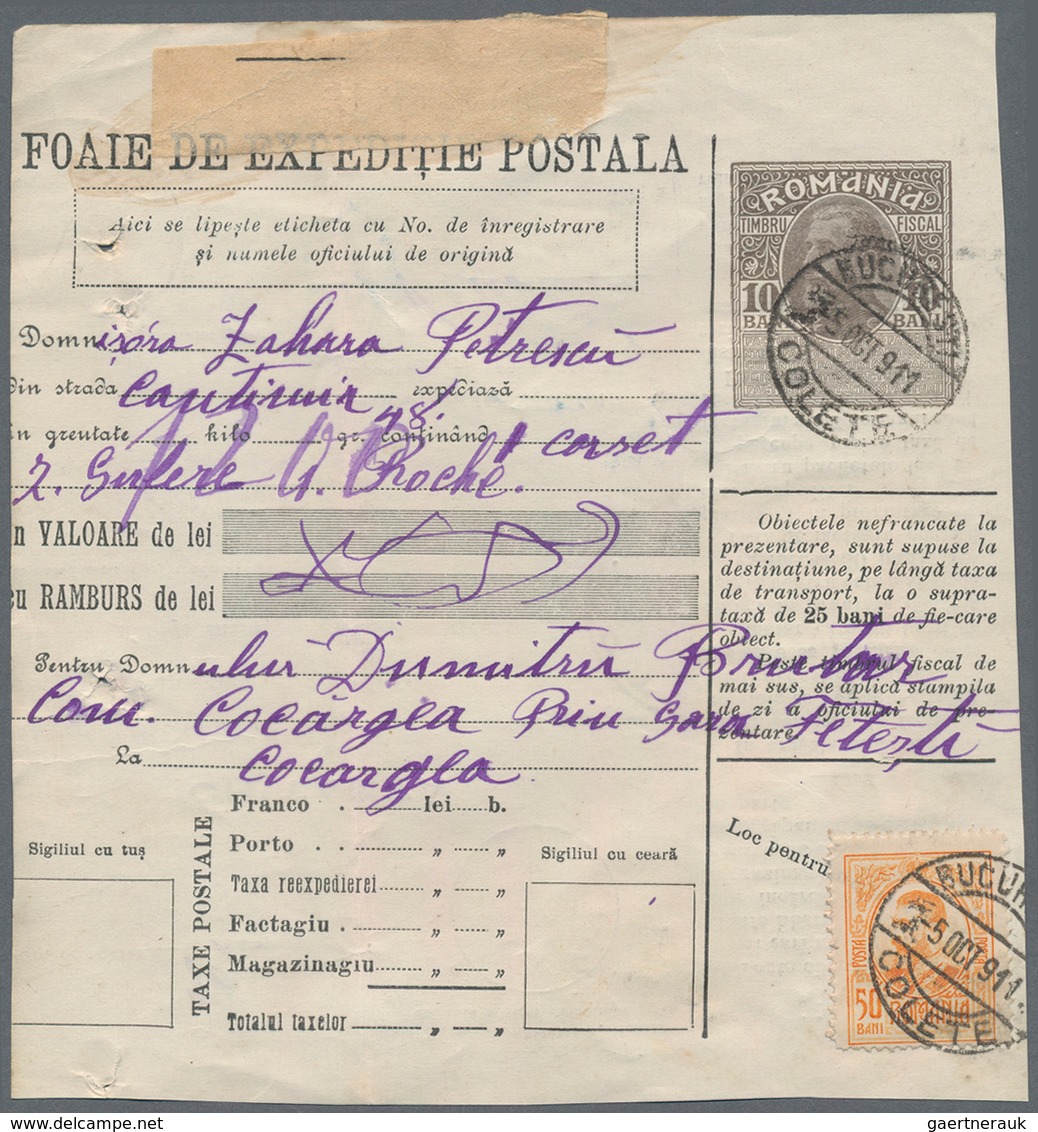 FOAIE DE EXPEDIȚIE POSTALA
Aici se lipește eticheta cu No. de înregistrare
și numele oficiului de origină
ROMANIA
TIMBRU FISCAL
10 10
BANI BANI
BUCUREȘTI
5 OCT 911
COLETE
Domnișóra Zahara Petrescu
din strada Cantimir expediază
în greutate kilo gr. 48 conținând 1 corset
Roche
în VALOARE de lei
cu RAMBURS de lei
Pentru Domnului Dumitru
Com. Cocârgea Prin Gara Fetești
La Cocargea
Obiectele nefrancate la
prezentare, sunt supuse la
destinațiune, pe lângă taxa
de transport, la o supra-
taxă de 25 bani de fie-care
obiect.
Peste timbrul fiscal de
mai sus, se aplică stampila
de zi a oficiului de pre-
zentare.
TAXE POSTALE
Franco . lei b.
Porto . . „ „
Taxa reexpedierei „ „
Factagiu . „ „
Magazinagiu „ „
Totalul taxelor „ „
Sigiliul cu tuș
Sigiliul cu ceară
Loc pentru
POSTA
50
BANI
ROMANIA
BUCUR
5 OCT 911
COLETE
gaertnerauk